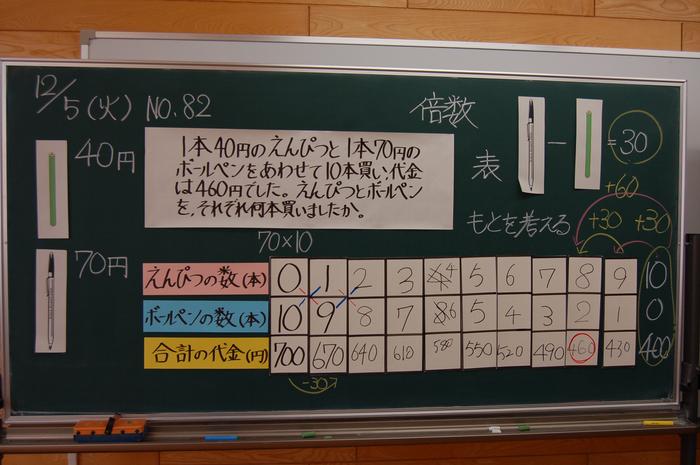 12/5(火) NO.82
倍数
40円
1本40円のえんぴつと1本70円の
ボールペンをあわせて10本買い、代金
は460円でした。えんぴつとボールペン
を、それぞれ何本買いましたか。
表
－
=30
+60
もとを考える
+30 +30
70円
70×10
えんぴつの数(本) 0 1 2 3 4 5 6 7 8 9 10
ボールペンの数(本) 10 9 8 7 6 5 4 3 2 1 0
合計の代金(円) 700 670 640 610 580 550 520 490 460 430 400
-30